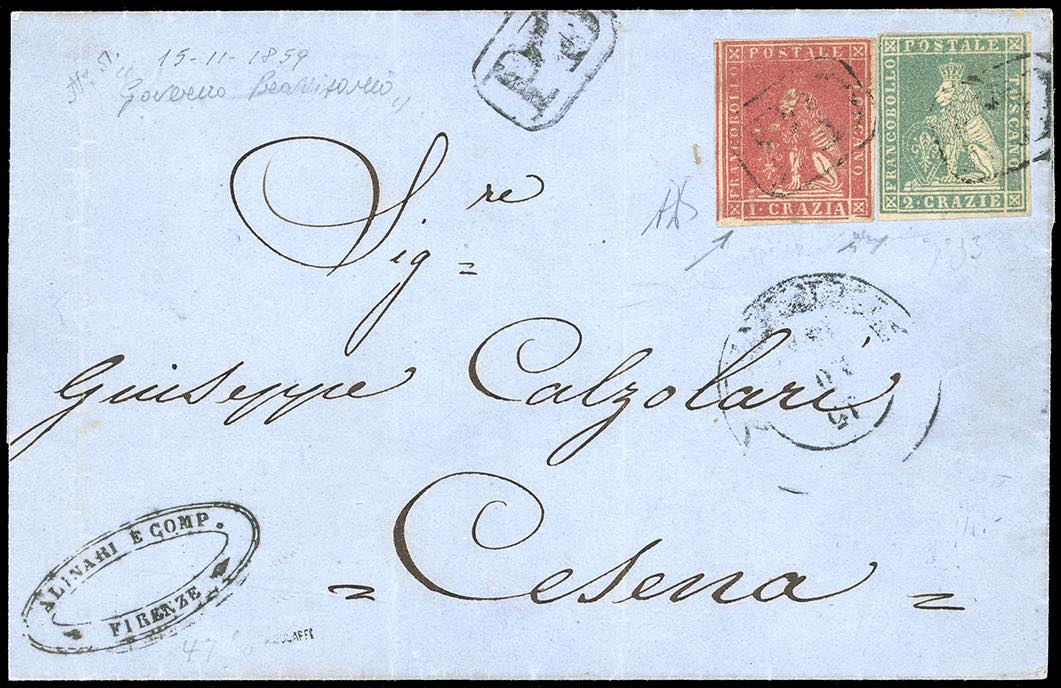 15-11-1859
Governo
PD
FRANCOBOLLO POSTALE TOSCANO
1·CRAZIA
PD
FRANCOBOLLO POSTALE TOSCANO
2·CRAZIE
Sig.re
Giuseppe Calzolari
15
Cesena
ALINARI E COMP.
FIRENZE
47